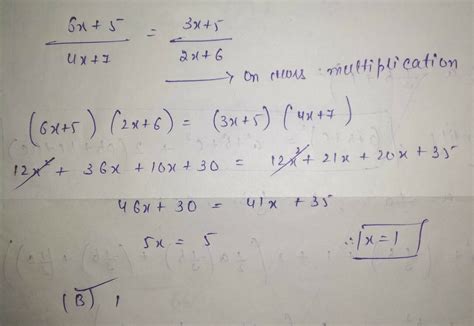 (6x+5)/(4x+7) = (3x+5)/(2x+6)
→ on cross multiplication
(6x+5) (2x+6) = (3x+5) (4x+7)
12x² + 36x + 10x + 30 = 12x² + 21x + 20x + 35
46x + 30 = 41x + 35
5x = 5 ∴ x = 1
(B) 1